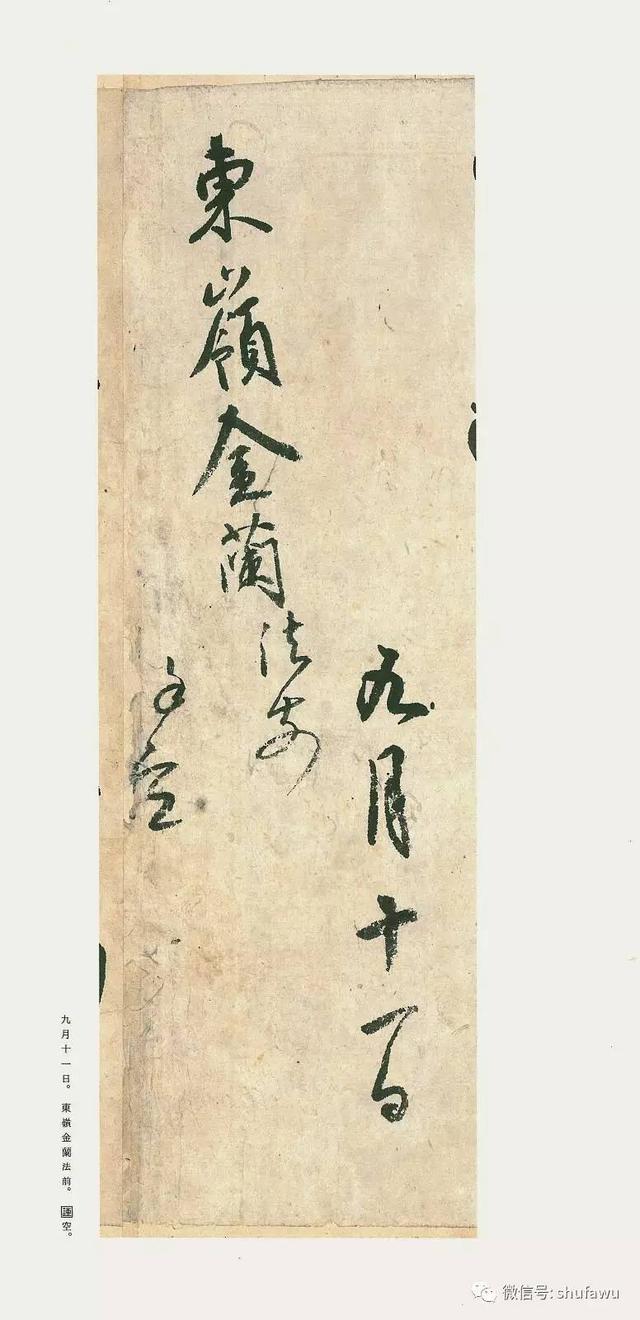 九月十一日
東嶺金蘭法前
空
九月十一日。東嶺金蘭法前。空。
微信号: shufawu